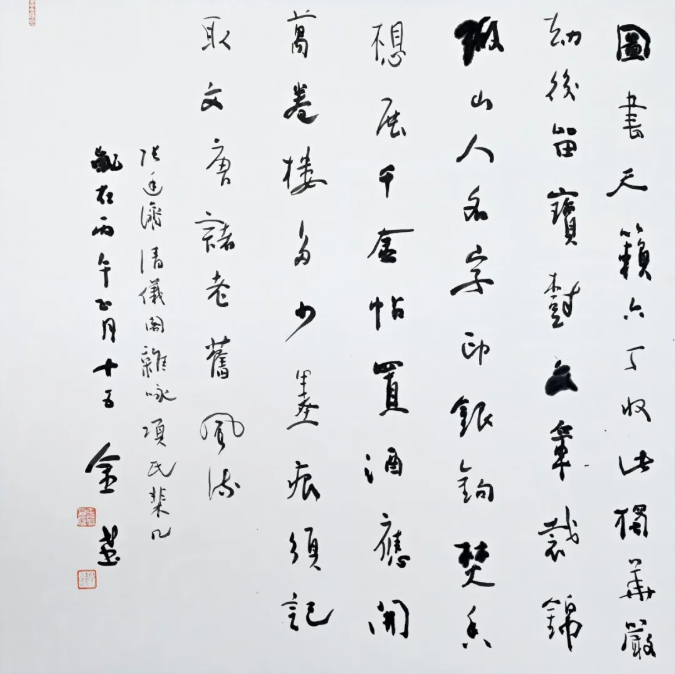 圖書天籟六丁收此獨華嚴
劫後留寶樹文裁錦
山人名字印銀鉤焚香
想展千金帖置酒應開
萬卷樓多少墨痕須記
取文唐諸老舊風流
張廷濟清儀閣雜詠項氏棐几
歲在丙午正月十五 金